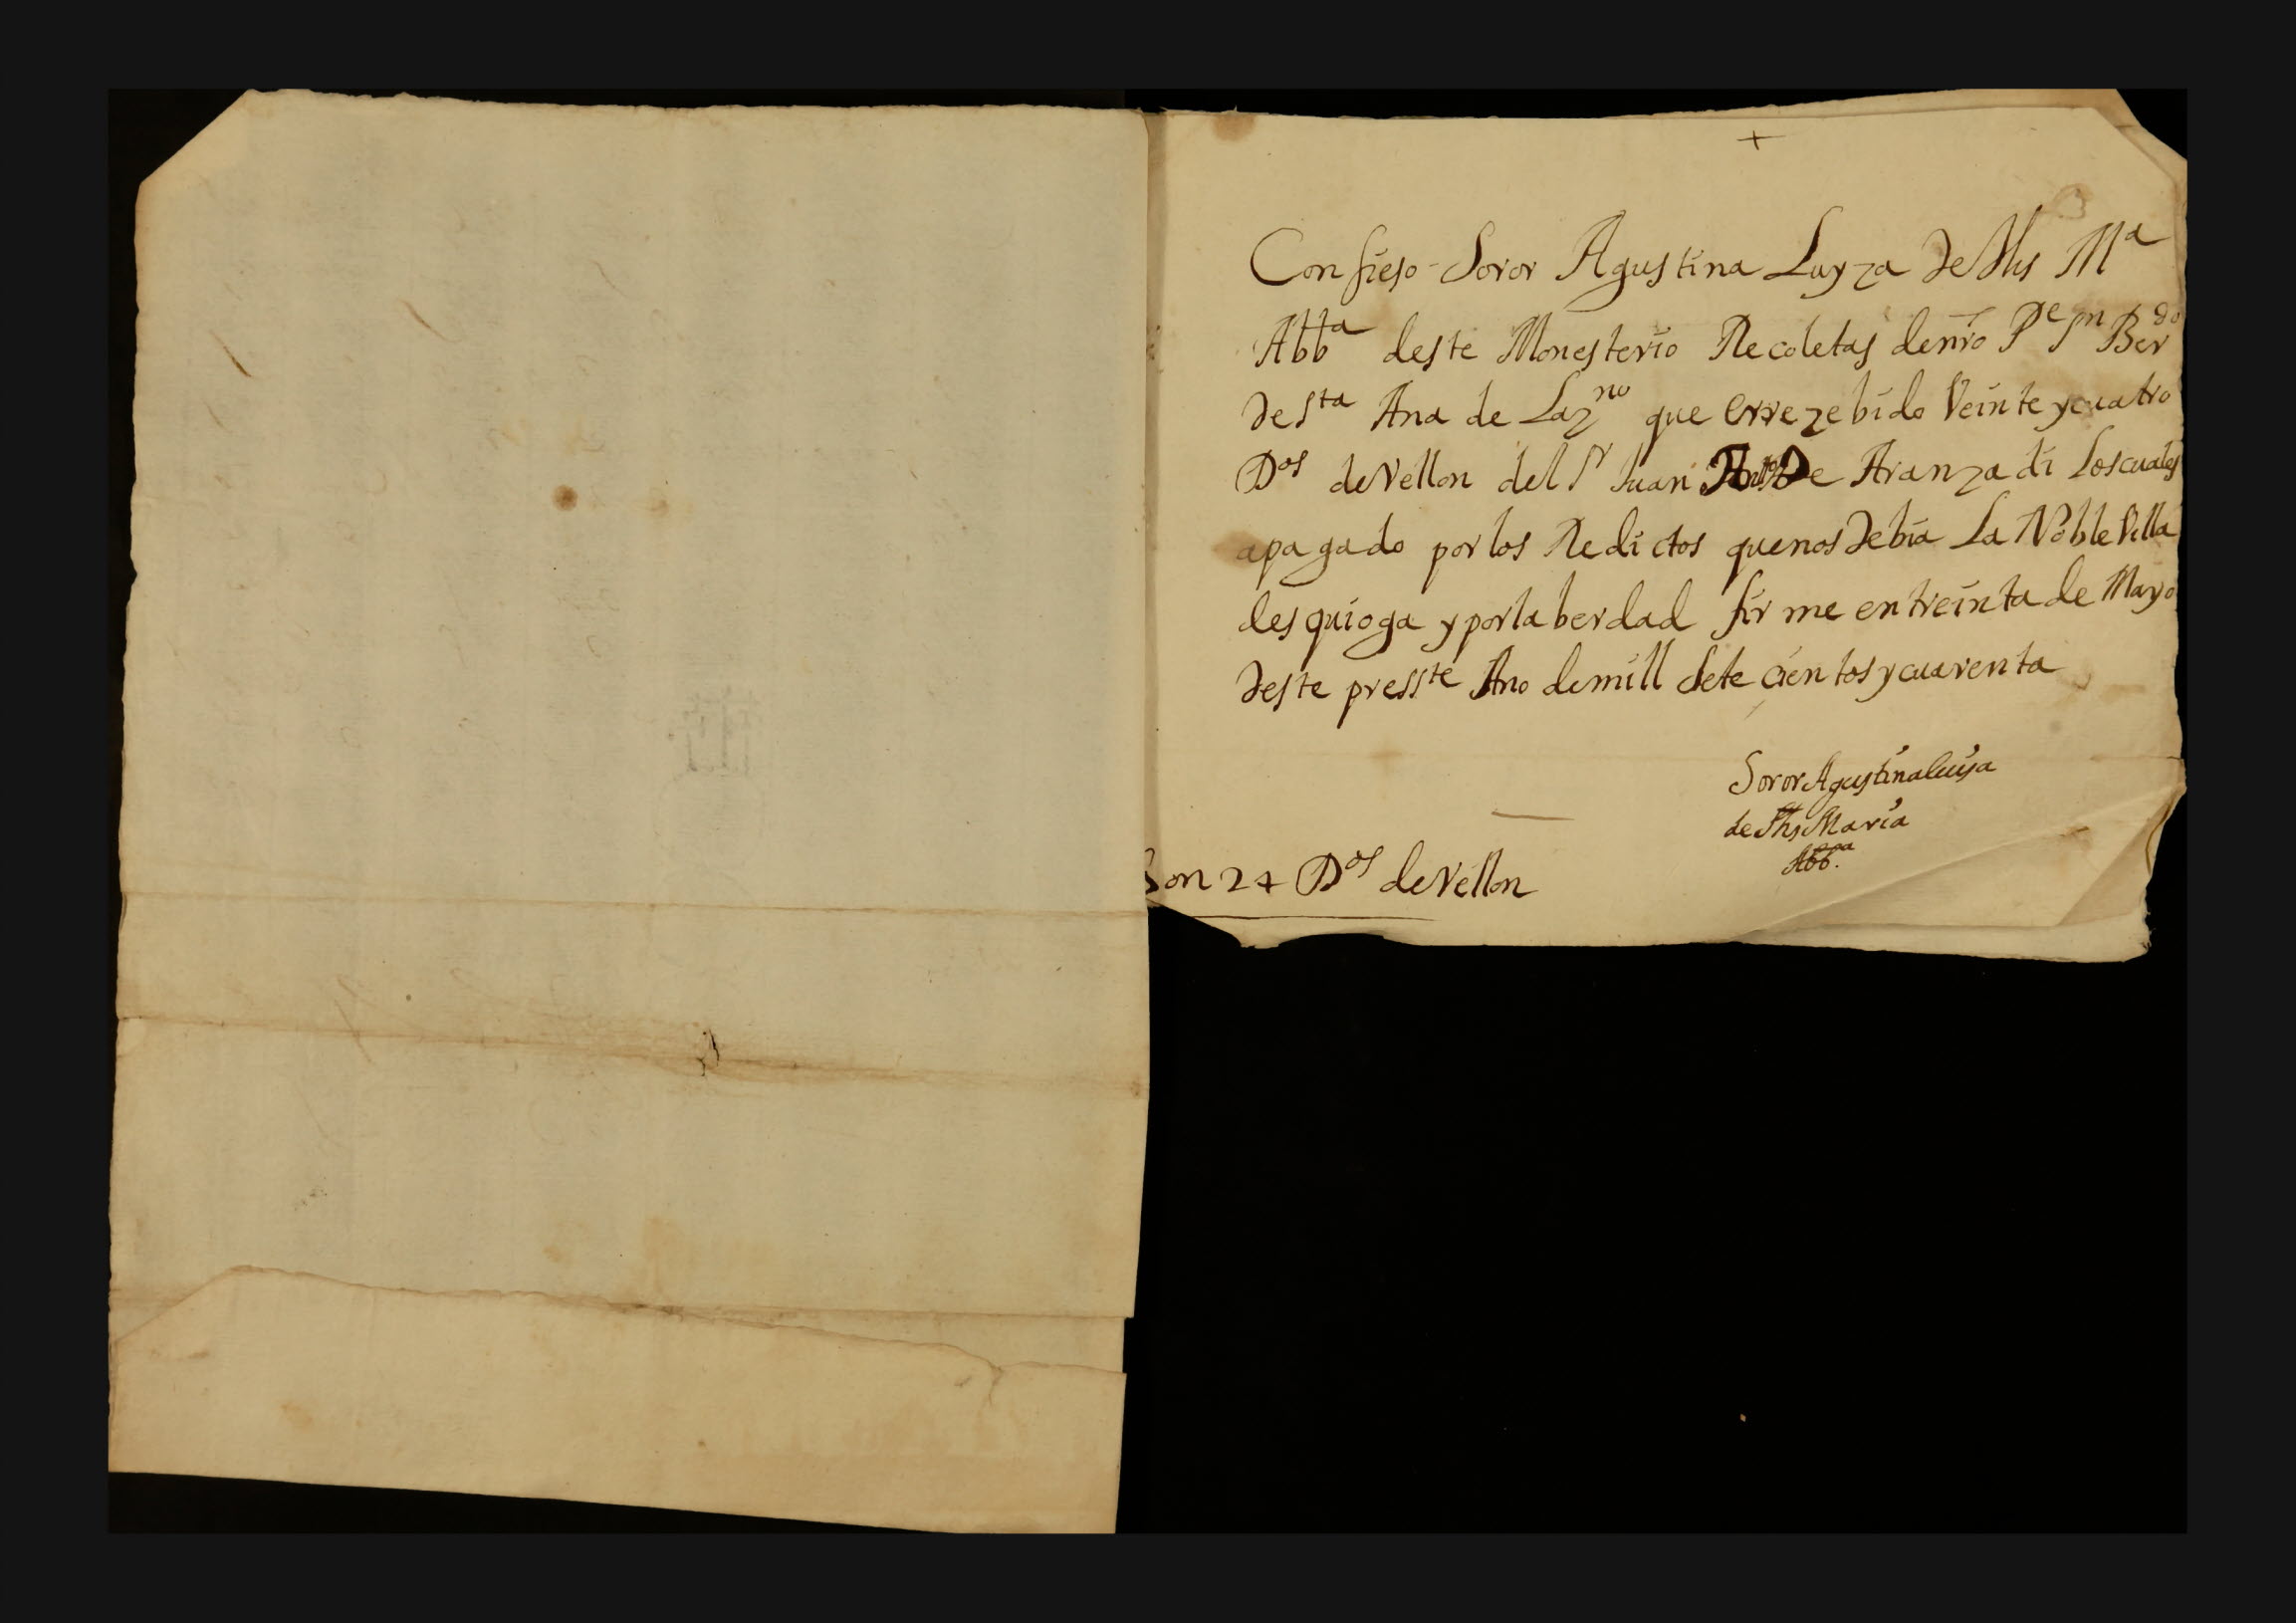 +
Confieso Soror Agustina Luyza de Jhs Mª
Abbª deste Monesterio Recoletas de nr̃o Pe Sn Berdo
de Sta Ana de Lazno que errezebido Veinte y cuatro
Dos de Vellon del Sr Juan De Aranzadi Los cuales
apagado por los Redictos que nos debia La Noble Villa
desquioga y por la berdad firme en treinta de Mayo
deste presste Ano de mill Sete cientos y cuarenta
Soror Agustina luisa
de Jhs Maria
Abbª.
Son 24 Dos de Vellon